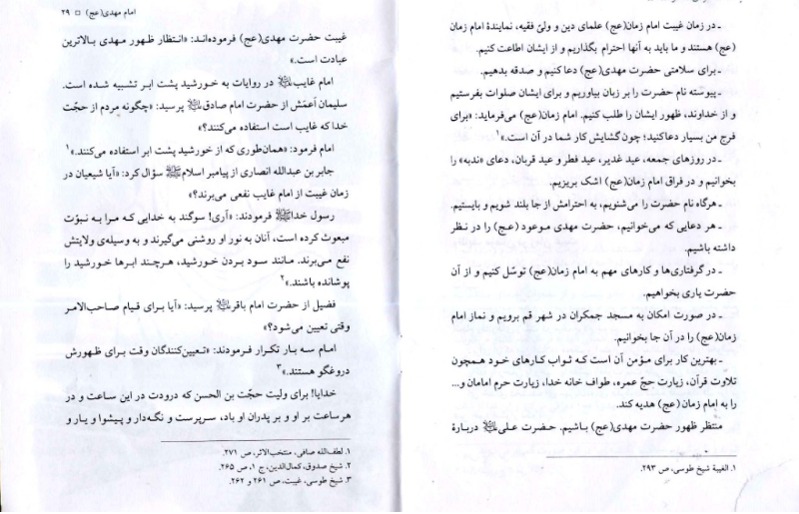 ـ در زمان غیبت امام زمان(عج) علمای دین و ولیّ فقیه، نمایندهٔ امام زمان
(عج) هستند و ما باید به آنها احترام بگذاریم و از ایشان اطاعت کنیم.
ـ برای سلامتی حضرت مهدی(عج) دعا کنیم و صدقه بدهیم.
ـ پیوسته نام حضرت را بر زبان بیاوریم و برای ایشان صلوات بفرستیم
و از خداوند، ظهور ایشان را طلب کنیم. امام زمان(عج) می‌فرماید: «برای
فرج من بسیار دعا کنید؛ چون گشایش کار شما در آن است.»۱
ـ در روزهای جمعه، عید غدیر، عید فطر و عید قربان، دعای «ندبه» را
بخوانیم و در فراق امام زمان(عج) اشک بریزیم.
ـ هرگاه نام حضرت را می‌شنویم، به احترامش از جا بلند شویم و بایستیم.
ـ هر دعایی که می‌خوانیم، حضرت مهدی موعود (عج) را در نظر
داشته باشیم.
ـ در گرفتاری‌ها و کارهای مهم به امام زمان(عج) توسّل کنیم و از آن
حضرت یاری بخواهیم.
ـ در صورت امکان به مسجد جمکران در شهر قم برویم و نماز امام
زمان(عج) را در آن جا بخوانیم.
ـ بهترین کار برای مؤمن آن است که ثواب کارهای خود همچون
تلاوت قرآن، زیارت حجّ عمره، طواف خانه خدا، زیارت حرم امامان و...
را به امام زمان (عج) هدیه کند.
منتظر ظهور حضرت مهدی(عج) باشیم. حضرت علی دربارهٔ
۱. الغیبة شیخ طوسی، ص ۲۹۳.
امام مهدی(عج) □ ۲۹
غیبت حضرت مهدی(عج) فرموده‌اند: «انتظار ظهور مهدی بالاترین
عبادت است.»
امام غایب در روایات به خورشید پشت ابر تشبیه شده است.
سلیمان اَعمَش از حضرت امام صادق پرسید: «چگونه مردم از حجّت
خدا که غایب است استفاده می‌کنند؟»
امام فرمود: «همان‌طوری که از خورشید پشت ابر استفاده می‌کنند.»۱
جابر بن عبدالله انصاری از پیامبر اسلام سؤال کرد: «آیا شیعیان در
زمان غیبت از امام غایب نفعی می‌برند؟»
رسول خدا فرمودند: «آری! سوگند به خدایی که مرا به نبوّت
مبعوث کرده است، آنان به نور او روشنی می‌گیرند و به وسیله‌ی ولایتش
نفع می‌برند. مانند سود بردن خورشید، هرچند ابرها خورشید را
پوشانده باشند.»۲
فضیل از حضرت امام باقر پرسید: «آیا برای قیام صاحب‌الامر
وقتی تعیین می‌شود؟»
امام سه بار تکرار فرمودند: «تعیین‌کنندگان وقت برای ظهورش
دروغگو هستند.»۳
خدایا! برای ولیت حجّت بن الحسن که درودت در این ساعت و در
هر ساعت بر او و بر پدران او باد، سرپرست و نگه‌دار و پیشوا و یار و
۱. لطف‌الله صافی، منتخب‌الاثر، ص ۲۷۱.
۲. شیخ صدوق، کمال‌الدین، ج ۱، ص ۲۶۵.
۳. شیخ طوسی، غیبت، ص ۲۶۱ و ۲۶۲.